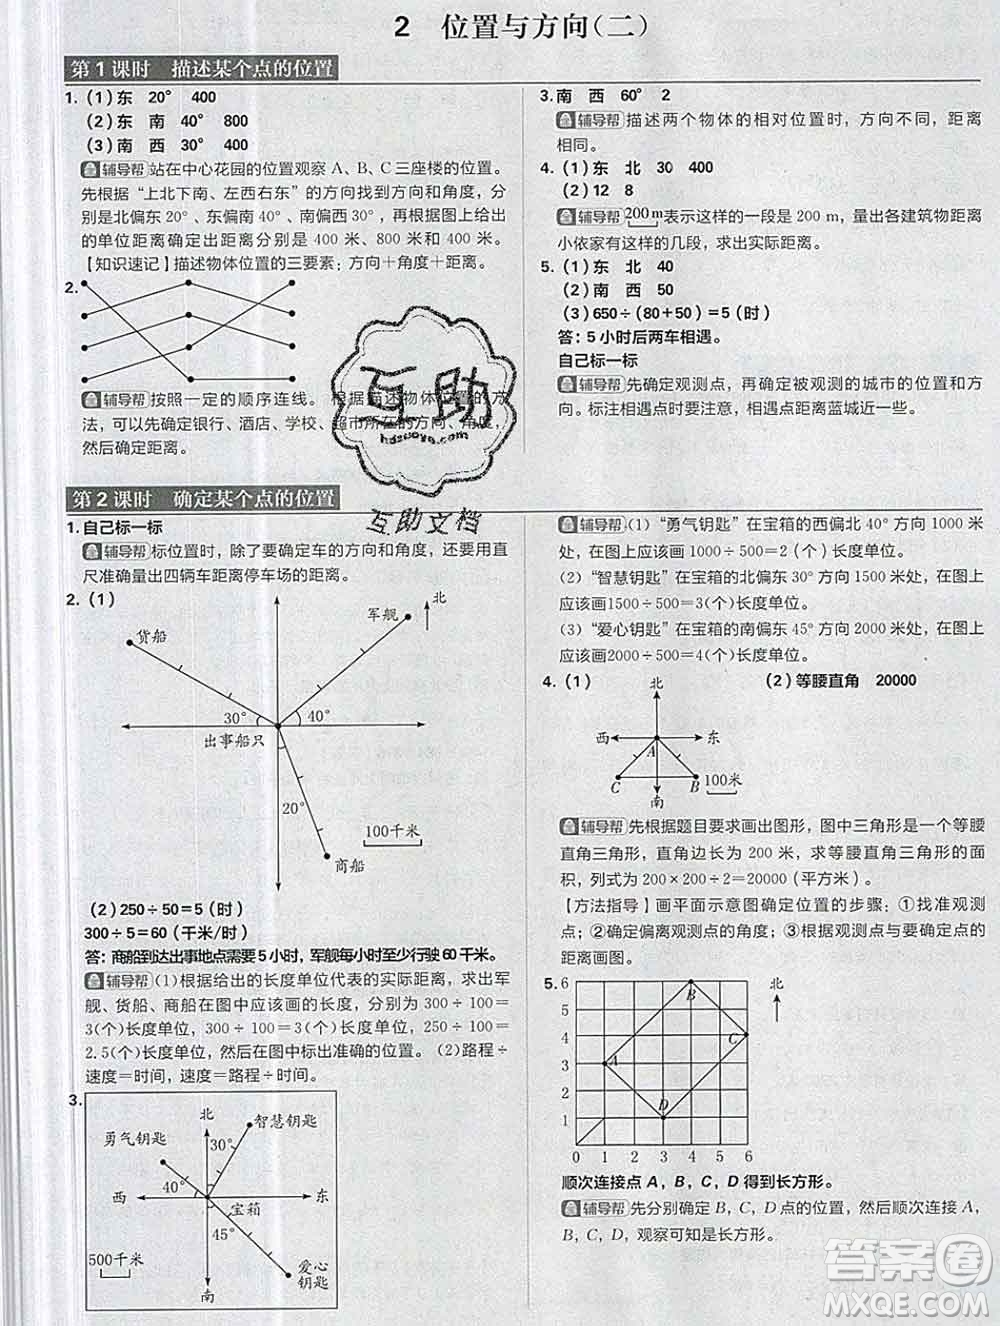 2 位置与方向(二)
第1课时 描述某个点的位置
1. (1)东 20° 400
(2)东 南 40° 800
(3)南 西 30° 400
辅导帮 站在中心花园的位置观察 A、B、C 三座楼的位置。
先根据“上北下南、左西右东”的方向找到方向和角度，分
别是北偏东 20°、东偏南 40°、南偏西 30°，再根据图上给出
的单位距离确定出距离分别是 400 米、800 米和 400 米。
【知识速记】描述物体位置的三要素：方向＋角度＋距离。
2.
辅导帮 按照一定的顺序连线。根据描述物体位置的方
法，可以先确定银行、酒店、学校、超市所在的方向、角度，
然后确定距离。
3. 南 西 60° 2
辅导帮 描述两个物体的相对位置时，方向不同，距离
相同。
4. (1)东 北 30 400
(2)12 8
辅导帮 200 m 表示这样的一段是 200 m，量出各建筑物距离
小依家有这样的几段，求出实际距离。
5. (1)东 北 40
(2)南 西 50
(3)650÷(80+50)=5(时)
答：5 小时后两车相遇。
自己标一标
辅导帮 先确定观测点，再确定被观测的城市的位置和方
向。标注相遇点时要注意，相遇点距离蓝城近一些。
互助
hdzuoye.com
互助文档
第2课时 确定某个点的位置
1. 自己标一标
辅导帮 标位置时，除了要确定车的方向和角度，还要用直
尺准确量出四辆车距离停车场的距离。
2. (1)
北
军舰
货船
30°
40°
出事船只
20°
100千米
商船
(2)250÷50=5(时)
300÷5=60(千米/时)
答：商船到达出事地点需要 5 小时，军舰每小时至少行驶 60 千米。
辅导帮 (1)根据给出的长度单位代表的实际距离，求出军
舰、货船、商船在图中应该画的长度，分别为 300÷100=
3(个)长度单位，300÷100=3(个)长度单位，250÷100=
2.5(个)长度单位，然后在图中标出准确的位置。(2)路程÷
速度=时间，速度=路程÷时间。
3.
北
智慧钥匙
勇气钥匙
30°
40°
西
东
宝箱
45°
500千米
爱心
钥匙
南
辅导帮 (1)“勇气钥匙”在宝箱的西偏北 40°方向 1000 米
处，在图上应该画 1000÷500=2(个)长度单位。
(2)“智慧钥匙”在宝箱的北偏东 30°方向 1500 米处，在图上
应该画1500÷500=3(个)长度单位。
(3)“爱心钥匙”在宝箱的南偏东 45°方向 2000 米处，在图上
应该画2000÷500=4(个)长度单位。
4. (1)
(2)等腰直角 20000
北
西
东
A
C
B
100米
南
辅导帮 先根据题目要求画出图形，图中三角形是一个等腰
直角三角形，直角边长是 200 米，求等腰直角三角形的面
积，列式为 200×200÷2=20000(平方米)。
【方法指导】画平面示意图确定位置的步骤：①找准观测
点；②确定偏离观测点的角度；③根据观测点与要确定点的
距离画图。
5.
6
5
4
3
2
1
0 1 2 3 4 5 6
A
B
C
D
北
顺次连接点 A，B，C，D 得到长方形。
辅导帮 先分别确定 B，C，D 点的位置，然后顺次连接 A，
B，C，D，观察可知是长方形。
答案圈
MXQE.COM